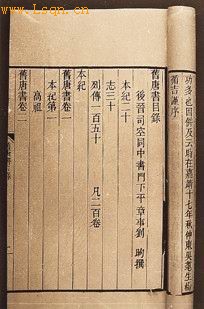 www.Lsqn.cn
功多也因併及云時在嘉靖十七年秋仲東吳
循吉謹序
舊唐書目錄
後晉司空同中書門下平章事劉昫撰
本紀二十
志三十
列傳一百五十 凡二百卷
舊唐書卷一
本紀第一
高祖
舊唐書卷二